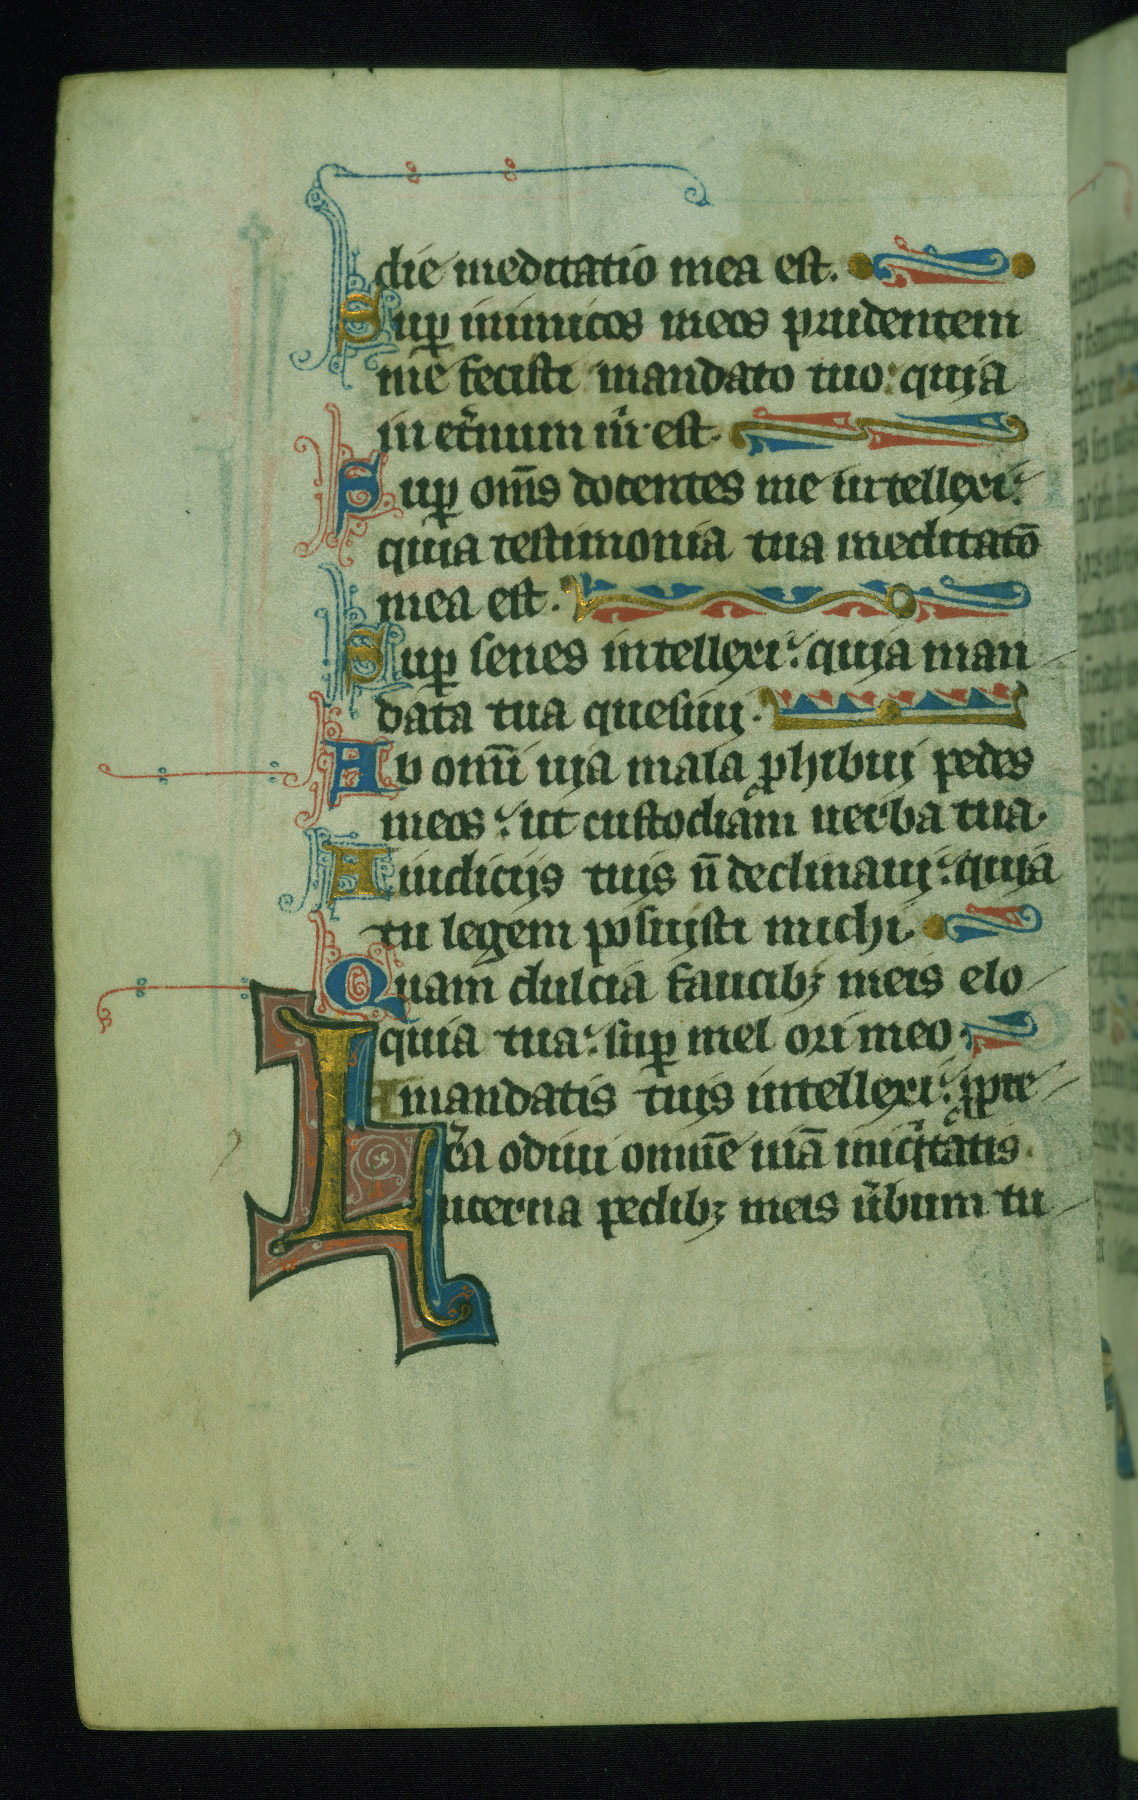 die meditatio mea est.
Sup̲ inimicos meos prudentem
me fecisti mandato tuo: quia
in et̾num m̾ est.
Sup̲ om̄s docentes me intellexi:
quia testimonia tua meditatō
mea est.
Sup̲ senes intellexi: quia man
data tua quesiui.
Ab omī uia mala ꝓhibui pedes
meos: ut custodiam uerba tua.
A iudicijs tuis n̄ declinaui: quia
tu legem posuisti michi.
Quam dulcia faucibꝫ meis elo
quia tua: sup̲ mel ori meo.
A mandatis tuis intellexi: ꝓpte
rea odiui omnē uiā iniq̇tatis.
Lucerna pedibꝫ meis u̾bum tu